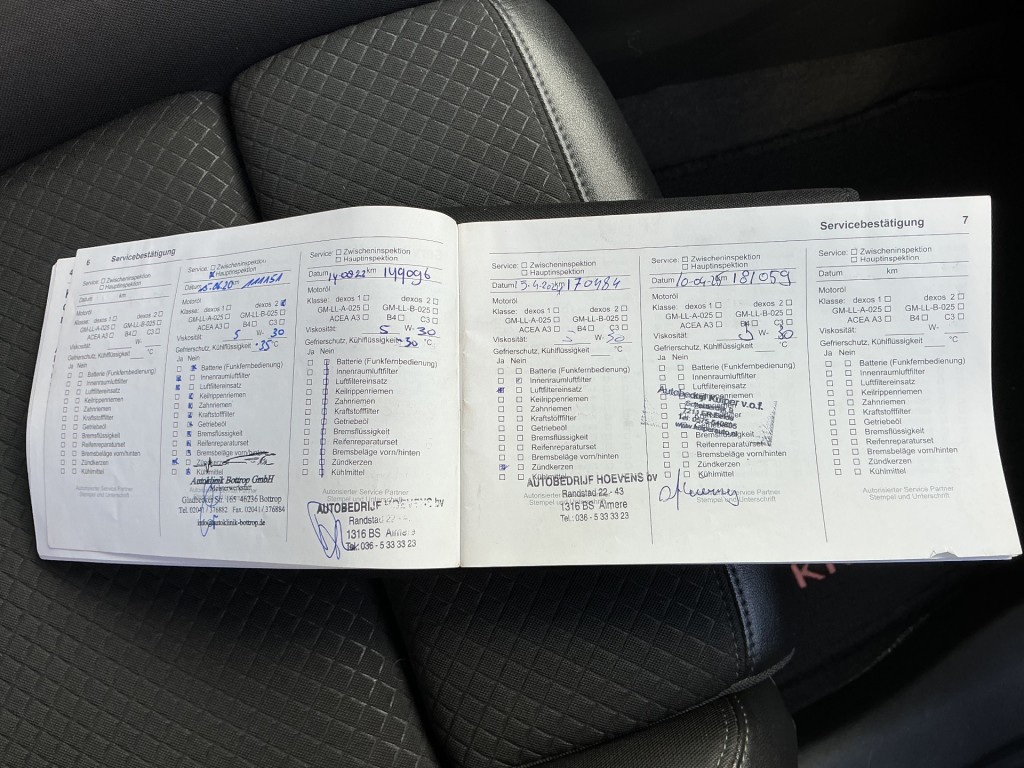 6 Servicebestätigung
Service: Zwischeninspektion
Hauptinspektion
Datum km
Motoröl
Klasse: dexos 1 dexos 2
GM-LL-A-025 GM-LL-B-025
ACEA A3 B4 C3
Viskosität: W-
Gefrierschutz, Kühlflüssigkeit: °C
Ja Nein
Batterie (Funkfernbedienung)
Innenraumluftfilter
Luftfiltereinsatz
Keilrippenriemen
Zahnriemen
Kraftstofffilter
Getriebeöl
Bremsflüssigkeit
Reifenreparaturset
Bremsbeläge vorn/hinten
Zündkerzen
Kühlmittel
Autorisierter Service Partner
Stempel und Unterschrift
Service: Zwischeninspektion
Hauptinspektion
Datum km 111151
Motoröl
Klasse: dexos 1 dexos 2
GM-LL-A-025 GM-LL-B-025
ACEA A3 B4 C3
Viskosität 5 W- 30
Gefrierschutz, Kühlflüssigkeit -35 °C
Ja Nein
Batterie (Funkfernbedienung)
Innenraumluftfilter
Luftfiltereinsatz
Keilrippenriemen
Zahnriemen
Kraftstofffilter
Getriebeöl
Bremsflüssigkeit
Reifenreparaturset
Bremsbeläge vorn/hinten
Kühlmittel
Autoklinik Bottrop GmbH
Meisterwerkstatt
Gladbecker Str. 165 46236 Bottrop
Tel. 02041 / 376882 Fax. 02041 / 376884
info@autoklinik-bottrop.de
Service: Zwischeninspektion
Hauptinspektion
Datum 14-09-22 km 149096
Motoröl
Klasse: dexos 1 dexos 2
GM-LL-A-025 GM-LL-B-025
ACEA A3 B4 C3
Viskosität 5 W- 30
Gefrierschutz, Kühlflüssigkeit -30 °C
Ja Nein
Batterie (Funkfernbedienung)
Innenraumluftfilter
Luftfiltereinsatz
Keilrippenriemen
Zahnriemen
Kraftstofffilter
Getriebeöl
Bremsflüssigkeit
Reifenreparaturset
Bremsbeläge vorn/hinten
Zündkerzen
Kühlmittel
Autorisierter Service Partner
Stempel und
AUTOBEDRIJF HOEVENS bv
Randstad 22 -
1316 BS Almere
Tel.: 036 - 5 33 33 23
Servicebestätigung 7
Service: Zwischeninspektion
Hauptinspektion
Datum km 170484
Motoröl
Klasse: dexos 1 dexos 2
GM-LL-A-025 GM-LL-B-025
ACEA A3 B4 C3
Viskosität 5 W- 30
Gefrierschutz, Kühlflüssigkeit °C
Ja Nein
Batterie (Funkfernbedienung)
Innenraumluftfilter
Luftfiltereinsatz
Keilrippenriemen
Zahnriemen
Kraftstofffilter
Getriebeöl
Bremsflüssigkeit
Reifenreparaturset
Bremsbeläge vorn/hinten
Zündkerzen
Kühlmittel
AUTOBEDRIJF HOEVENS bv
Randstad 22 - 43
1316 BS Almere
Tel.: 036 - 5 33 33 23
Service: Zwischeninspektion
Hauptinspektion
Datum km 181059
Motoröl
Klasse: dexos 1 dexos 2
GM-LL-A-025 GM-LL-B-025
ACEA A3 B4 C3
Viskosität 5 W- 30
Gefrierschutz, Kühlflüssigkeit °C
Ja Nein
Batterie (Funkfernbedienung)
Innenraumluftfilter
Luftfiltereinsatz
Autobedrijf Kuiper v.o.f.
Bremsflüssigkeit
Reifenreparaturset
Bremsbeläge vorn/hinten
Zündkerzen
Kühlmittel
Service Partner
Unterschrift
Service: Zwischeninspektion
Hauptinspektion
Datum km
Motoröl
Klasse: dexos 1 dexos 2
GM-LL-A-025 GM-LL-B-025
ACEA A3 B4 C3
Viskosität W-
Gefrierschutz, Kühlflüssigkeit °C
Ja Nein
Batterie (Funkfernbedienung)
Innenraumluftfilter
Luftfiltereinsatz
Keilrippenriemen
Zahnriemen
Kraftstofffilter
Getriebeöl
Bremsflüssigkeit
Reifenreparaturset
Bremsbeläge vorn/hinten
Zündkerzen
Kühlmittel
Autorisierter Service Partner
Stempel und Unterschrift